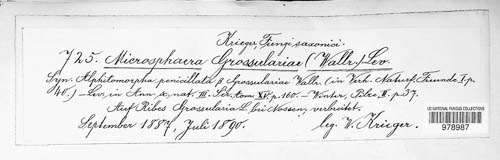 Krieger, Fungi saxonici.
725. Microsphaera Grossulariae (Wallr.) Lev.
Syn. Alphitomorpha penicillata β Grossulariae Wallr. (in Verh. Naturf. Freunde I p.
40.) – Lev. in Ann. s. nat. III Ser. tom XV. p. 160. – Winter, Pilze II. p. 37.
Auf Ribes Grossularia L. bei Nossen, verbreitet.
September 1887, Juli 1890. leg. W. Krieger.
US NATIONAL FUNGUS COLLECTIONS
978987